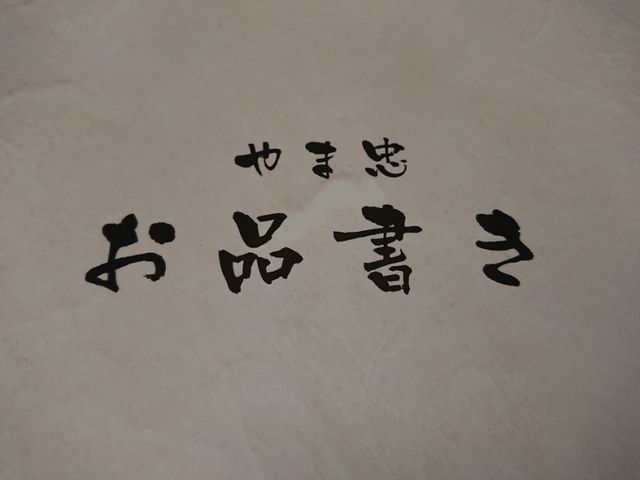 やま忠
お品書き